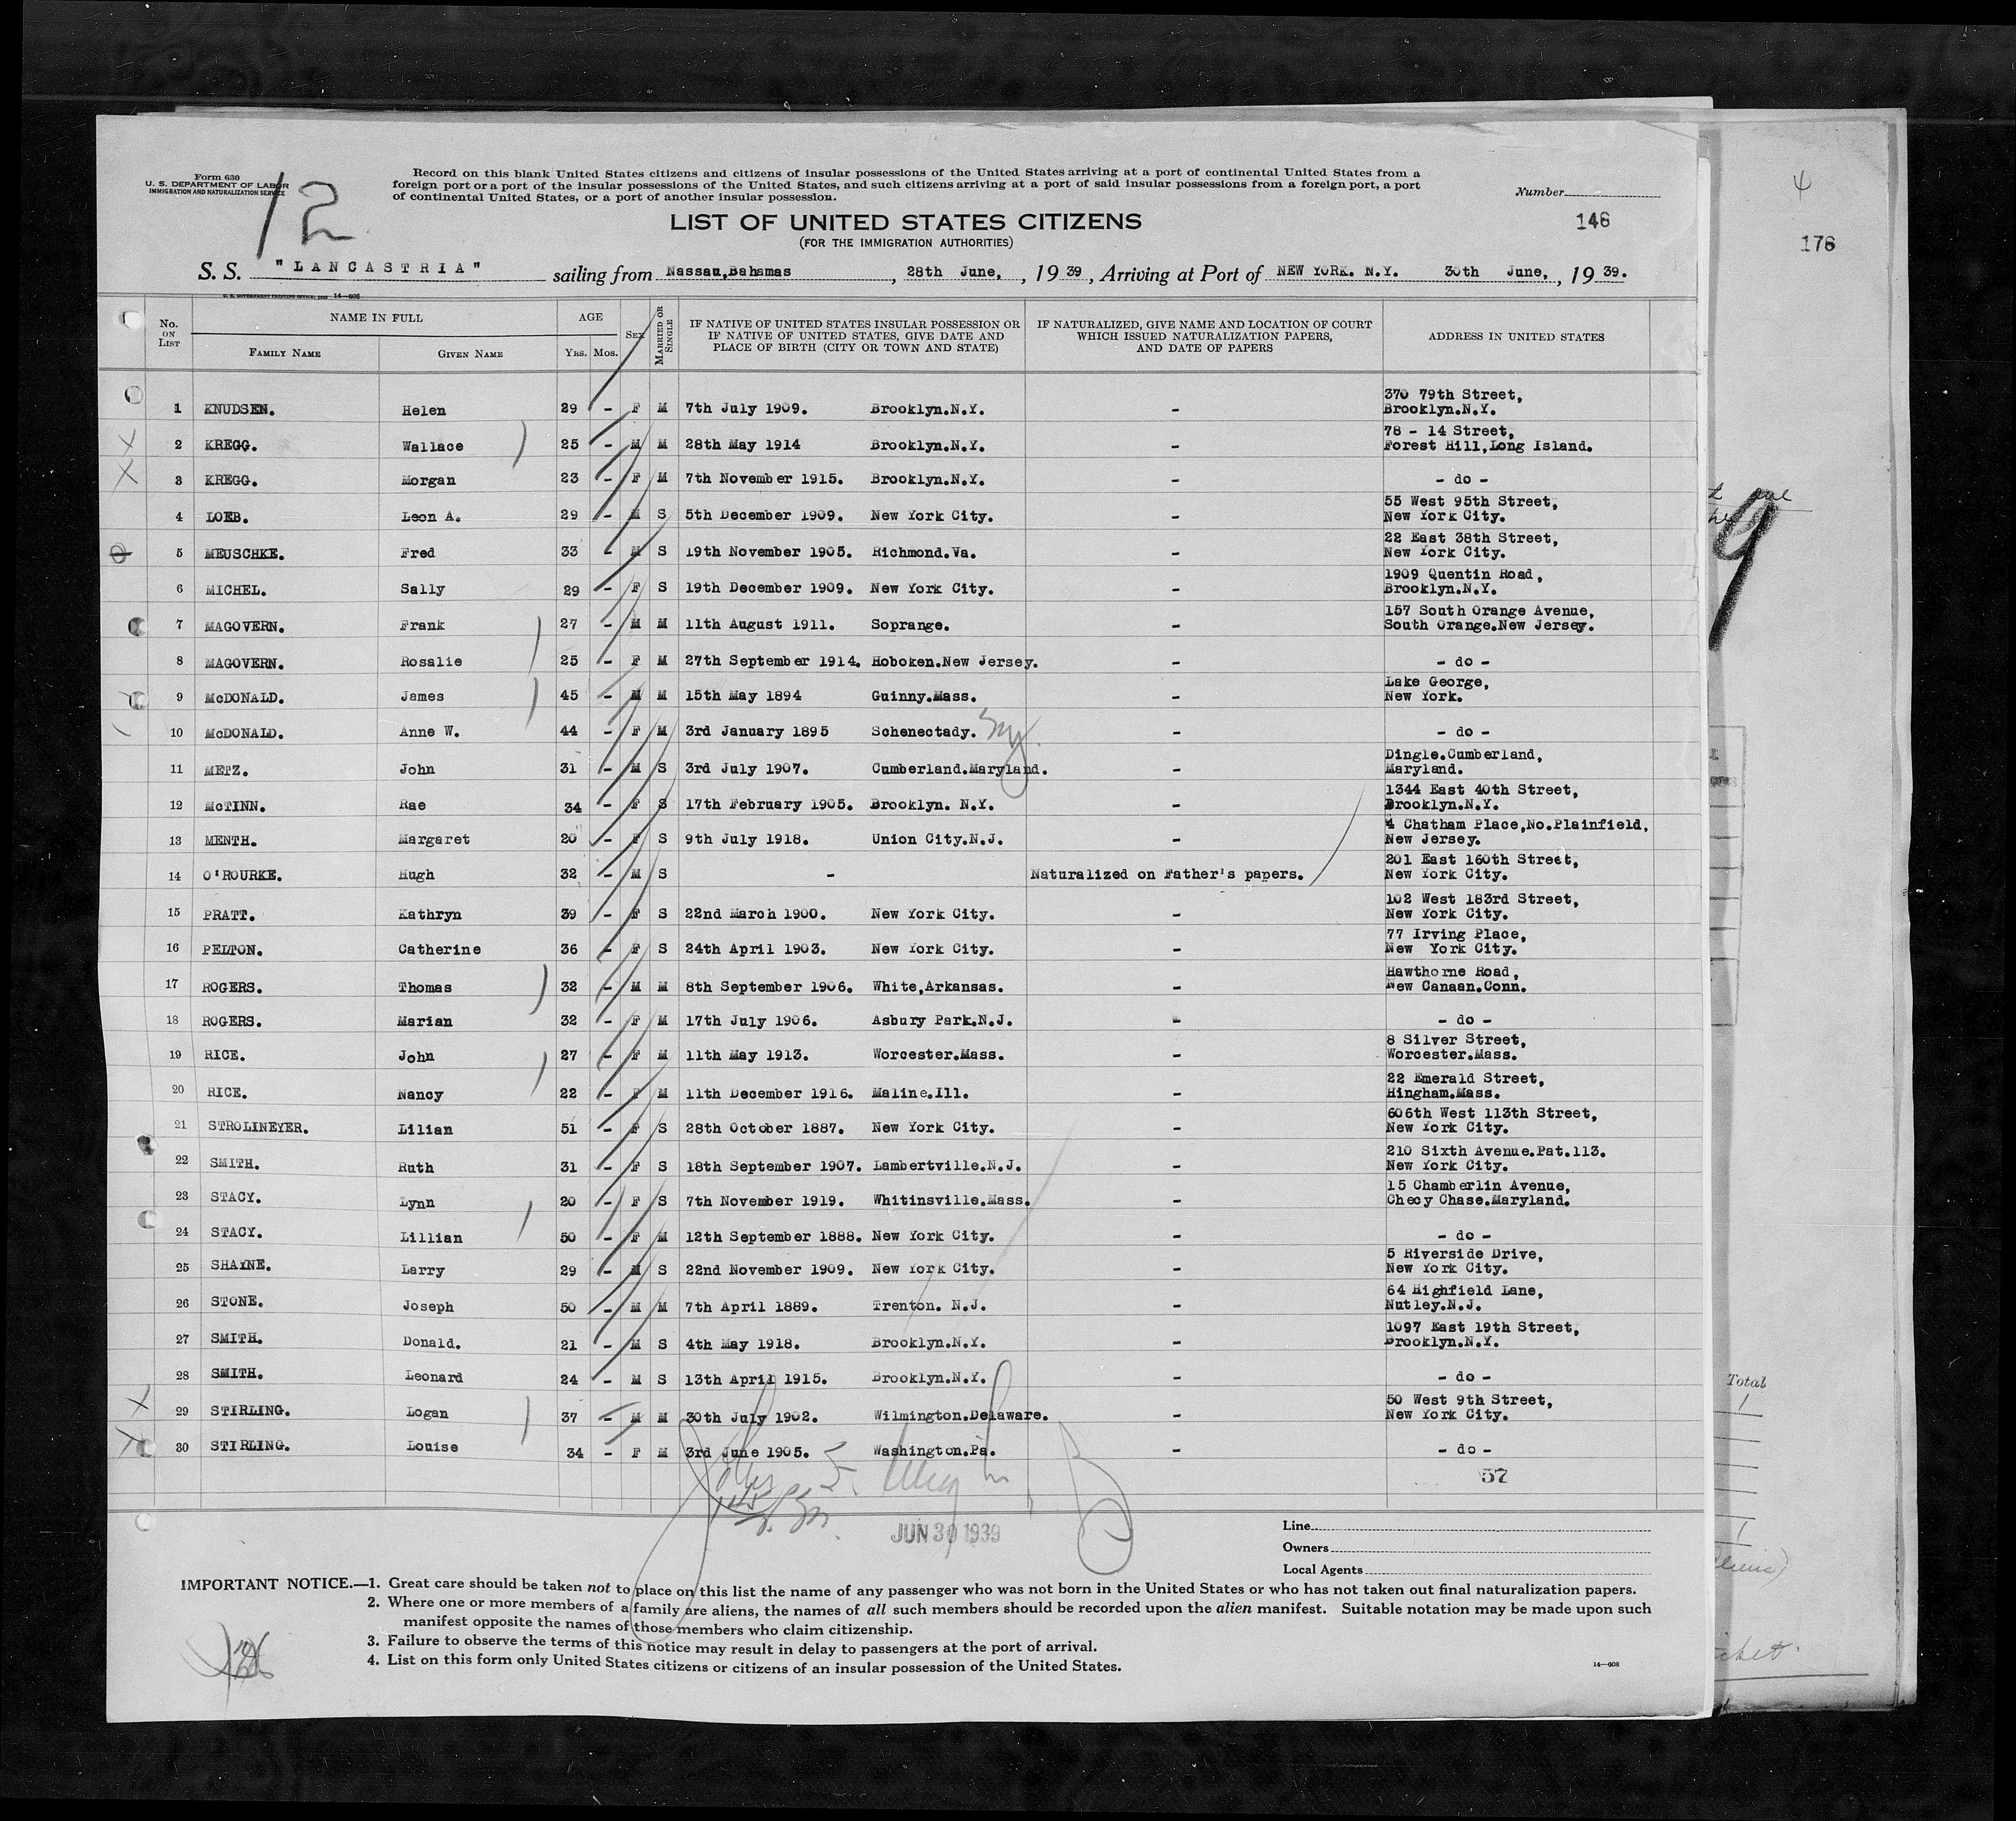 Form 630
U. S. DEPARTMENT OF LABOR
IMMIGRATION AND NATURALIZATION SERVICE
12
Record on this blank United States citizens and citizens of insular possessions of the United States arriving at a port of continental United States from a
foreign port or a port of the insular possessions of the United States, and such citizens arriving at a port of said insular possessions from a foreign port, a port
of continental United States, or a port of another insular possession.
Number
LIST OF UNITED STATES CITIZENS
146
(FOR THE IMMIGRATION AUTHORITIES)
176
S. S. "LANCASTRIA" sailing from Nassau,Bahamas, 28th June, 1939, Arriving at Port of NEW YORK. N.Y. 30th June, 1939.
U. S. GOVERNMENT PRINTING OFFICE: 14-608
No. ON LIST NAME IN FULL AGE SEX MARRIED OR SINGLE IF NATIVE OF UNITED STATES INSULAR POSSESSION OR IF NATIVE OF UNITED STATES, GIVE DATE AND PLACE OF BIRTH (CITY OR TOWN AND STATE) IF NATURALIZED, GIVE NAME AND LOCATION OF COURT WHICH ISSUED NATURALIZATION PAPERS, AND DATE OF PAPERS ADDRESS IN UNITED STATES
FAMILY NAME GIVEN NAME YRS. MOS.
1 KNUDSEN. Helen 29 - F M 7th July 1909. Brooklyn.N.Y. - 370 79th Street, Brooklyn.N.Y.
2 KREGG. Wallace 25 - M M 28th May 1914 Brooklyn.N.Y. - 78 - 14 Street, Forest Hill,Long Island.
3 KREGG. Morgan 23 - F M 7th November 1915. Brooklyn.N.Y. - - do -
4 LOEB. Leon A. 29 - M S 5th December 1909. New York City. - 55 West 95th Street, New York City.
5 MEUSCHKE. Fred 33 - M S 19th November 1905. Richmond.Va. - 22 East 38th Street, New York City.
6 MICHEL. Sally 29 - F S 19th December 1909. New York City. - 1909 Quentin Road, Brooklyn.N.Y.
7 MAGOVERN. Frank 27 - M M 11th August 1911. Soprange. - 157 South Orange Avenue, South Orange.New Jersey.
8 MAGOVERN. Rosalie 25 - F M 27th September 1914. Hoboken.New Jersey. - - do -
9 McDONALD. James 45 - M M 15th May 1894 Guinny.Mass. - Lake George, New York.
10 McDONALD. Anne W. 44 - F M 3rd January 1895 Schenectady. NY. - - do -
11 METZ. John 31 - M S 3rd July 1907. Cumberland.Maryland. - Dingle.Cumberland, Maryland.
12 McTINN. Rae 34 - F S 17th February 1905. Brooklyn. N.Y. - 1344 East 40th Street, Brooklyn.N.Y.
13 MENTH. Margaret 20 - F S 9th July 1918. Union City.N.J. - 4 Chatham Place,No.Plainfield, New Jersey.
14 O'ROURKE. Hugh 32 - M S - Naturalized on Father's papers. 201 East 160th Street, New York City.
15 PRATT. Kathryn 39 - F S 22nd March 1900. New York City. - 102 West 183rd Street, New York City.
16 PELTON. Catherine 36 - F S 24th April 1903. New York City. - 77 Irving Place, New York City.
17 ROGERS. Thomas 32 - M M 8th September 1906. White,Arkansas. - Hawthorne Road, New Canaan.Conn.
18 ROGERS. Marian 32 - F M 17th July 1906. Asbury Park.N.J. - - do -
19 RICE. John 27 - F M 11th May 1913. Worcester.Mass. - 8 Silver Street, Worcester.Mass.
20 RICE. Nancy 22 - F M 11th December 1916. Maline.Ill. - 22 Emerald Street, Hingham.Mass.
21 STROLINEYER. Lilian 51 - F S 28th October 1887. New York City. - 606th West 113th Street, New York City.
22 SMITH. Ruth 31 - F S 18th September 1907. Lambertville.N.J. - 210 Sixth Avenue.Pat.113. New York City.
23 STACY. Lynn 20 - F S 7th November 1919. Whitinsville.Mass. - 15 Chamberlin Avenue, Checy Chase.Maryland.
24 STACY. Lillian 50 - F M 12th September 1888. New York City. - - do -
25 SHAYNE. Larry 29 - M S 22nd November 1909. New York City. - 5 Riverside Drive, New York City.
26 STONE. Joseph 50 - M M 7th April 1889. Trenton. N.J. - 64 Highfield Lane, Nutley.N.J.
27 SMITH. Donald. 21 - M S 4th May 1918. Brooklyn.N.Y. - 1097 East 19th Street, Brooklyn.N.Y.
28 SMITH. Leonard 24 - M S 13th April 1915. Brooklyn.N.Y. - - do -
29 STIRLING. Logan 37 - M M 30th July 1902. Wilmington.Delaware. - 50 West 9th Street, New York City.
30 STIRLING. Louise 34 - F M 3rd June 1905. Washington.Pa. - - do -
57
JUN 30 1939
Line
Owners
Local Agents
IMPORTANT NOTICE.—1. Great care should be taken not to place on this list the name of any passenger who was not born in the United States or who has not taken out final naturalization papers.
2. Where one or more members of a family are aliens, the names of all such members should be recorded upon the alien manifest. Suitable notation may be made upon such
manifest opposite the names of those members who claim citizenship.
3. Failure to observe the terms of this notice may result in delay to passengers at the port of arrival.
4. List on this form only United States citizens or citizens of an insular possession of the United States.
14—608
Total